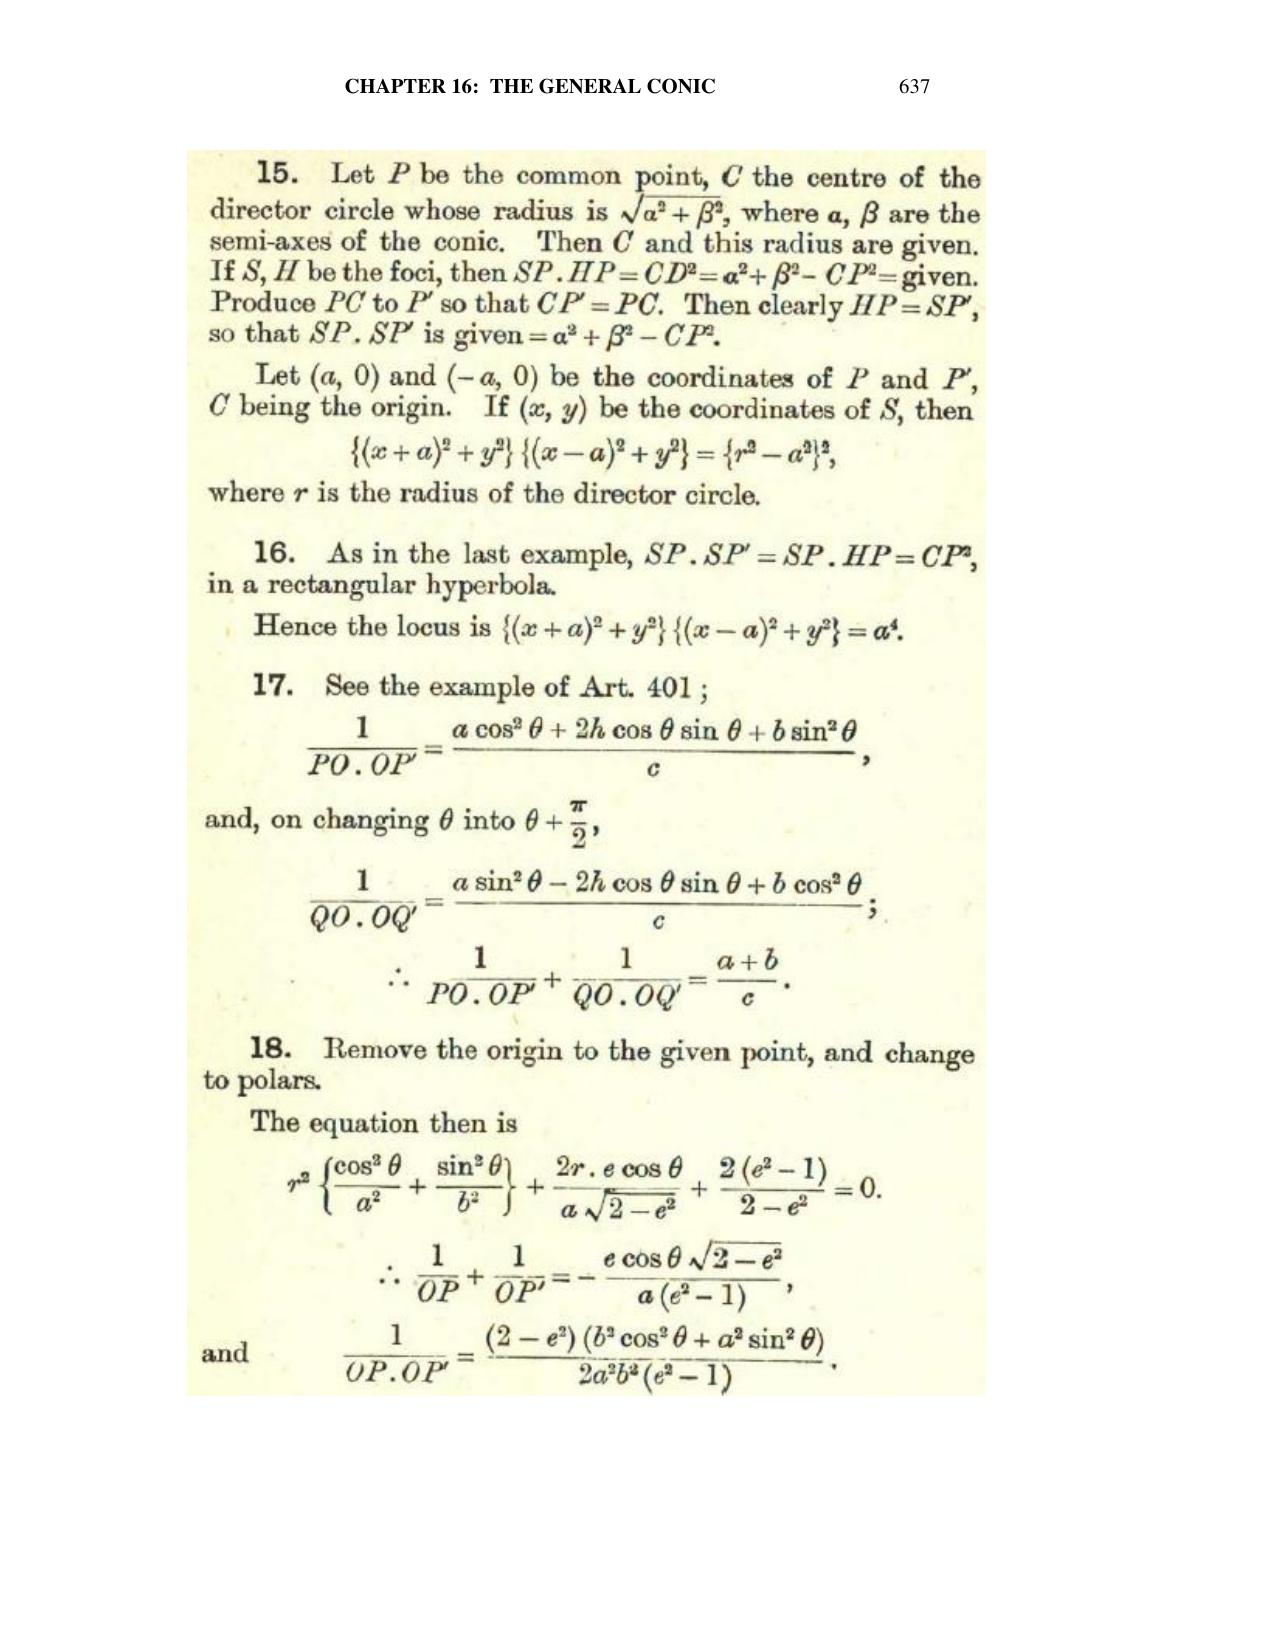 CHAPTER 16: THE GENERAL CONIC 637
15. Let P be the common point, C the centre of the
director circle whose radius is √(α² + β²), where α, β are the
semi-axes of the conic. Then C and this radius are given.
If S, H be the foci, then SP . HP = CD² = α² + β² – CP² = given.
Produce PC to P′ so that CP′ = PC. Then clearly HP = SP′,
so that SP . SP′ is given = α² + β² – CP².
Let (a, 0) and (– a, 0) be the coordinates of P and P′,
C being the origin. If (x, y) be the coordinates of S, then
{(x + a)² + y²} {(x – a)² + y²} = {r² – a²}²,
where r is the radius of the director circle.
16. As in the last example, SP . SP′ = SP . HP = CP²,
in a rectangular hyperbola.
Hence the locus is {(x + a)² + y²} {(x – a)² + y²} = a⁴.
17. See the example of Art. 401 ;
1/(PO . OP′) = (a cos² θ + 2h cos θ sin θ + b sin² θ)/c ,
and, on changing θ into θ + π/2,
1/(QO . OQ′) = (a sin² θ – 2h cos θ sin θ + b cos² θ)/c ;
∴ 1/(PO . OP′) + 1/(QO . OQ′) = (a + b)/c .
18. Remove the origin to the given point, and change
to polars.
The equation then is
r² {cos² θ/a² + sin² θ/b²} + (2r . e cos θ)/(a √(2 – e²)) + 2 (e² – 1)/(2 – e²) = 0.
∴ 1/OP + 1/OP′ = – (e cos θ √(2 – e²))/(a (e² – 1)) ,
and 1/(OP . OP′) = ((2 – e²) (b² cos² θ + a² sin² θ))/(2a²b² (e² – 1)) .